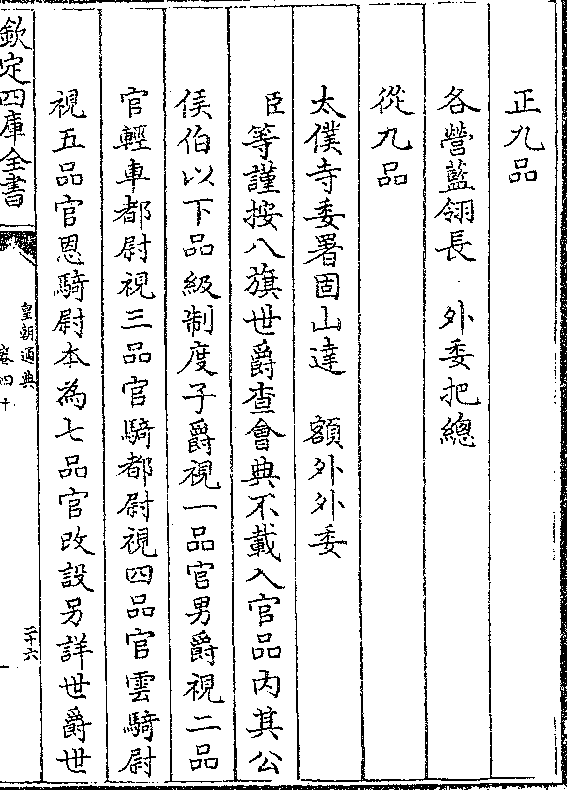 正九品
各營藍翎長 外委把總
從九品
太僕寺委署固山達 額外外委
臣等謹按八旗世爵查會典不載入官品内其公
侯伯以下品級制度子爵視一品官男爵視二品
官輕車都尉視三品官騎都尉視四品官雲騎尉
視五品官恩騎尉本為七品官改設另詳世爵世
欽定四庫全書
皇朝通典
卷四十
二十六